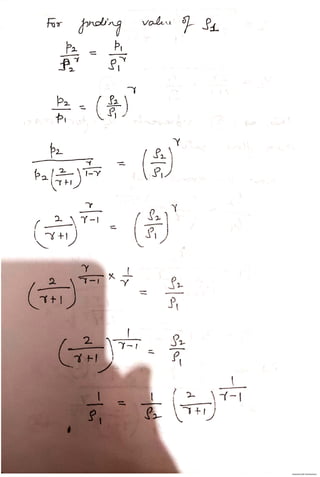 For finding value of ρ1
p2/ρ2^γ = p1/ρ1^γ
p2/p1 = (ρ2/ρ1)^γ
p2/(p2(2/(γ+1))^(γ/(1-γ))) = (ρ2/ρ1)^γ
(2/(γ+1))^(γ/(γ-1)) = (ρ2/ρ1)^γ
(2/(γ+1))^(γ/(γ-1) × 1/γ) = ρ2/ρ1
(2/(γ+1))^(1/(γ-1)) = ρ2/ρ1
1/ρ1 = 1/ρ2 (2/(γ+1))^(1/(γ-1))